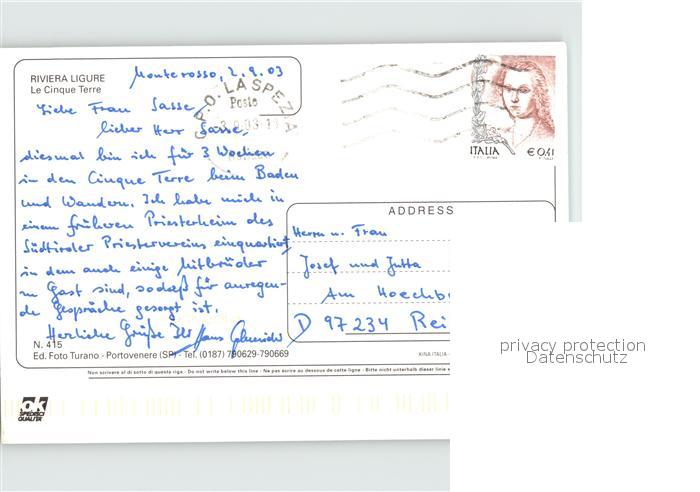 RIVIERA LIGURE
Le Cinque Terre
Monterosso, 2.9.03
Liebe Frau Sasse,
lieber Herr Sasse,
diesmal bin ich für 3 Wochen
in den Cinque Terre beim Baden
und Wandern. Ich habe mich in
einem früheren Priesterheim des
Südtiroler Priestervereins einquartiert
in dem auch einige Mitbrüder
zu Gast sind, sodaß für anregen-
de Gespräche gesorgt ist.
Herzliche Grüße Ihr Hans
N. 415
Ed. Foto Turano - Portovenere (SP) - Tel. (0187) 790629-790669
C.P.O. LA SPEZIA
Poste
ITALIA
€ 0,41
ADDRESS
Herrn u. Frau
Josef und Jutta
Am
D 97234 Rei
XINA ITALIA -
Non scrivere al di sotto di questa riga - Do not write below this line - Ne pas écrire au dessous de cette ligne - Bitte nicht unterhalb dieser linie
ok
SPEDISCI
QUALI'SÌ
privacy protection
Datenschutz